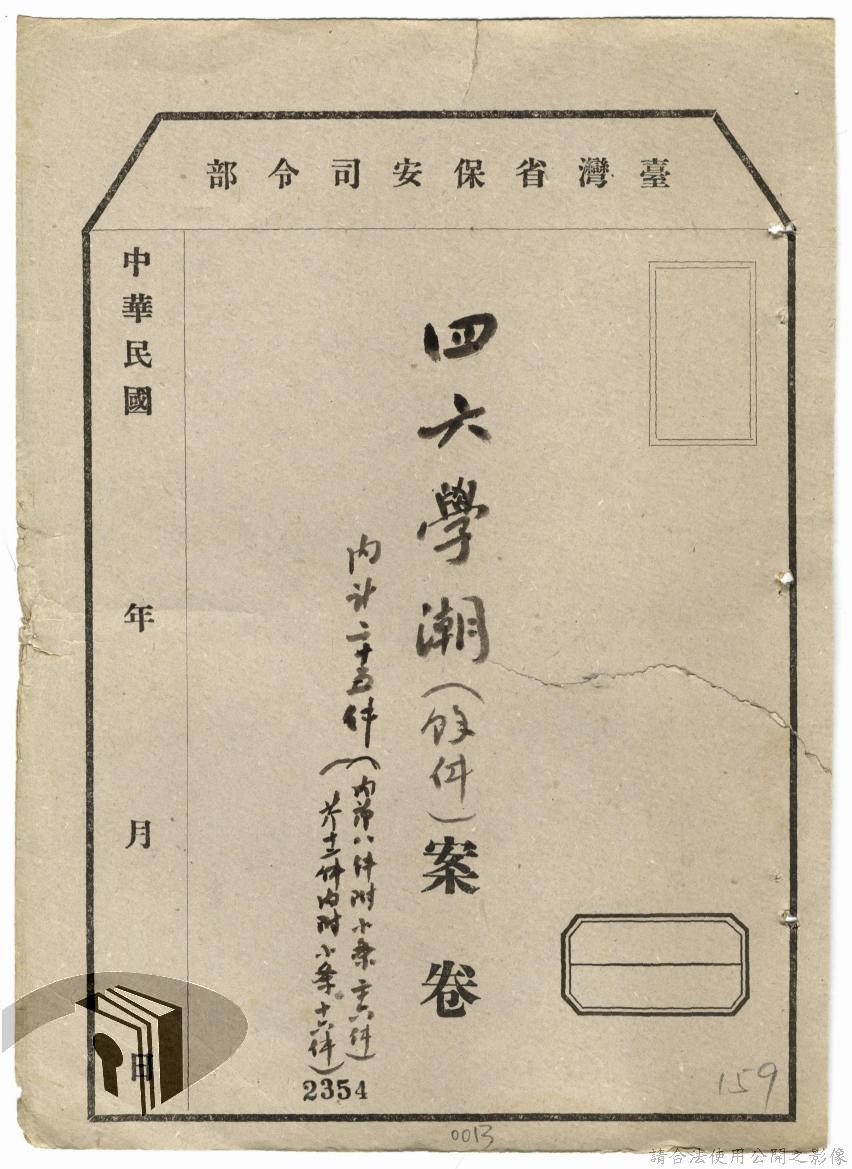 臺灣省保安司令部
四六學潮(餘件)案卷
內計二十五件
(內第八件附小条主六件)
(第十二件內附小条十六件)
中華民國 年 月 日
2354
159
0013
請合法使用公開之影像